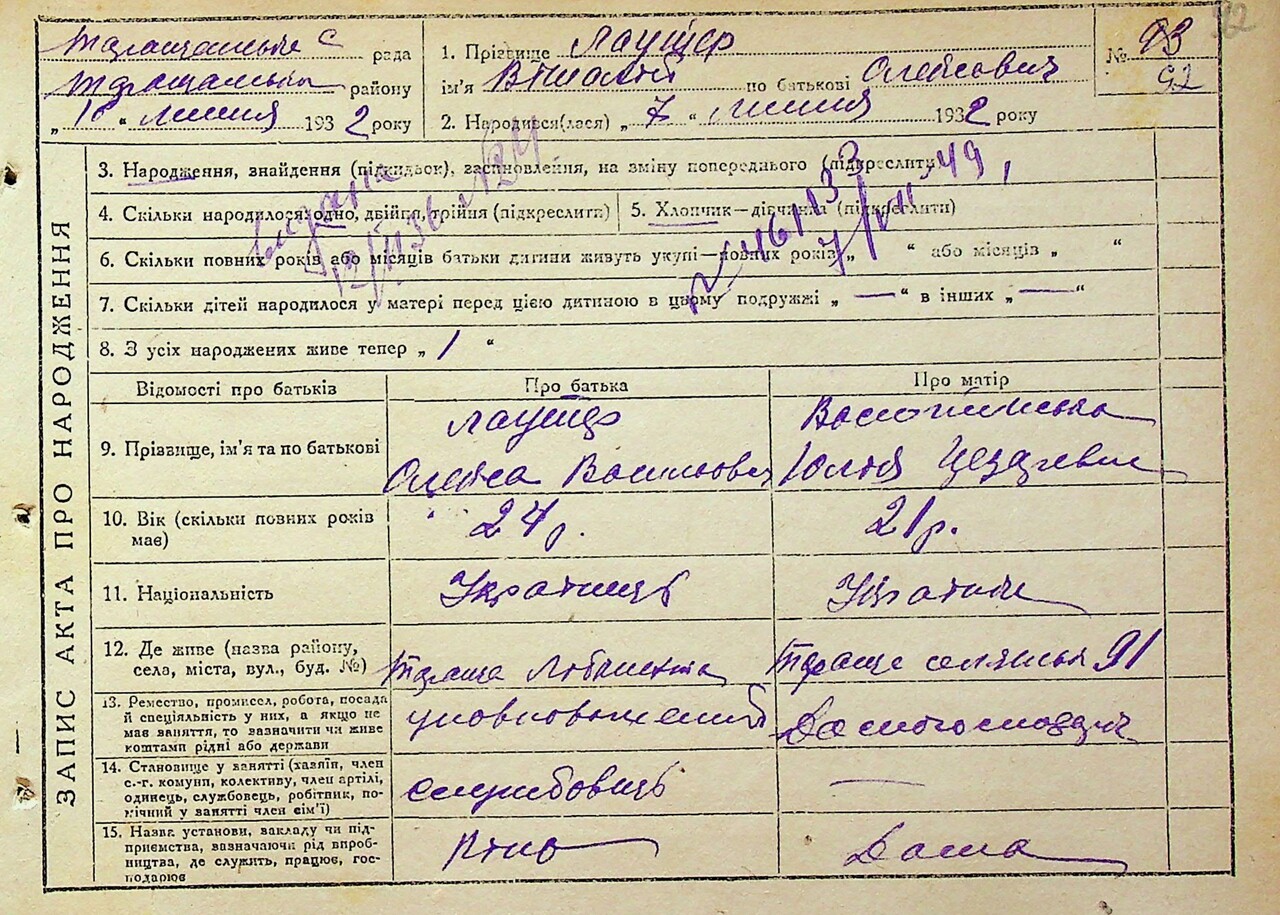 92
Таращанська с рада
Таращанська району
„ 10 “ липня 1932 року
1. Прізвище Лаущер
ім'я Віталій по батькові Олексович
2. Народився(лася) „ 7 “ липня 1932 року
№ 93
92
ЗАПИС АКТА ПРО НАРОДЖЕННЯ
3. Народження, знайдення (підкидьок), засиновлення, на зміну попереднього (підкреслити)
4. Скільки народилося: одно, двійня, трійня (підкреслити)
5. Хлопчик—дівчинка (підкреслити)
6. Скільки повних років або місяців батьки дитини живуть укупі—повних років „ “ або місяців „ “
7. Скільки дітей народилося у матері перед цією дитиною в цьому подружжі „ — “ в інших „ — “
8. З усіх народжених живе тепер „ 1 “
Відомості про батьків
Про батька
Про матір
9. Прізвище, ім'я та по батькові
Лаущер
Олекса Васильович
Юлія Цезаревна
10. Вік (скільки повних років
має)
24 р.
21 р.
11. Національність
Українець
Українка
12. Де живе (назва району,
села, міста, вул., буд. №)
Тараща
Тараща селянська 91
13. Ремество, промисел, робота, посада
й спеціяльність у них, а якщо не
має заняття, то зазначити чи живе
коштами рідні або держави
уповноважений
Домогосподарка
14. Становище у занятті (хазяїн, член
с.-г. комуни, колективу, член артілі,
одинець, службовець, робітник, по-
мічний у занятті член сім'ї)
службовець
—
15. Назва установи, закладу чи під-
приємства, зазначаючи рід вироб-
ництва, де служить, працює, гос-
подарює
Дома